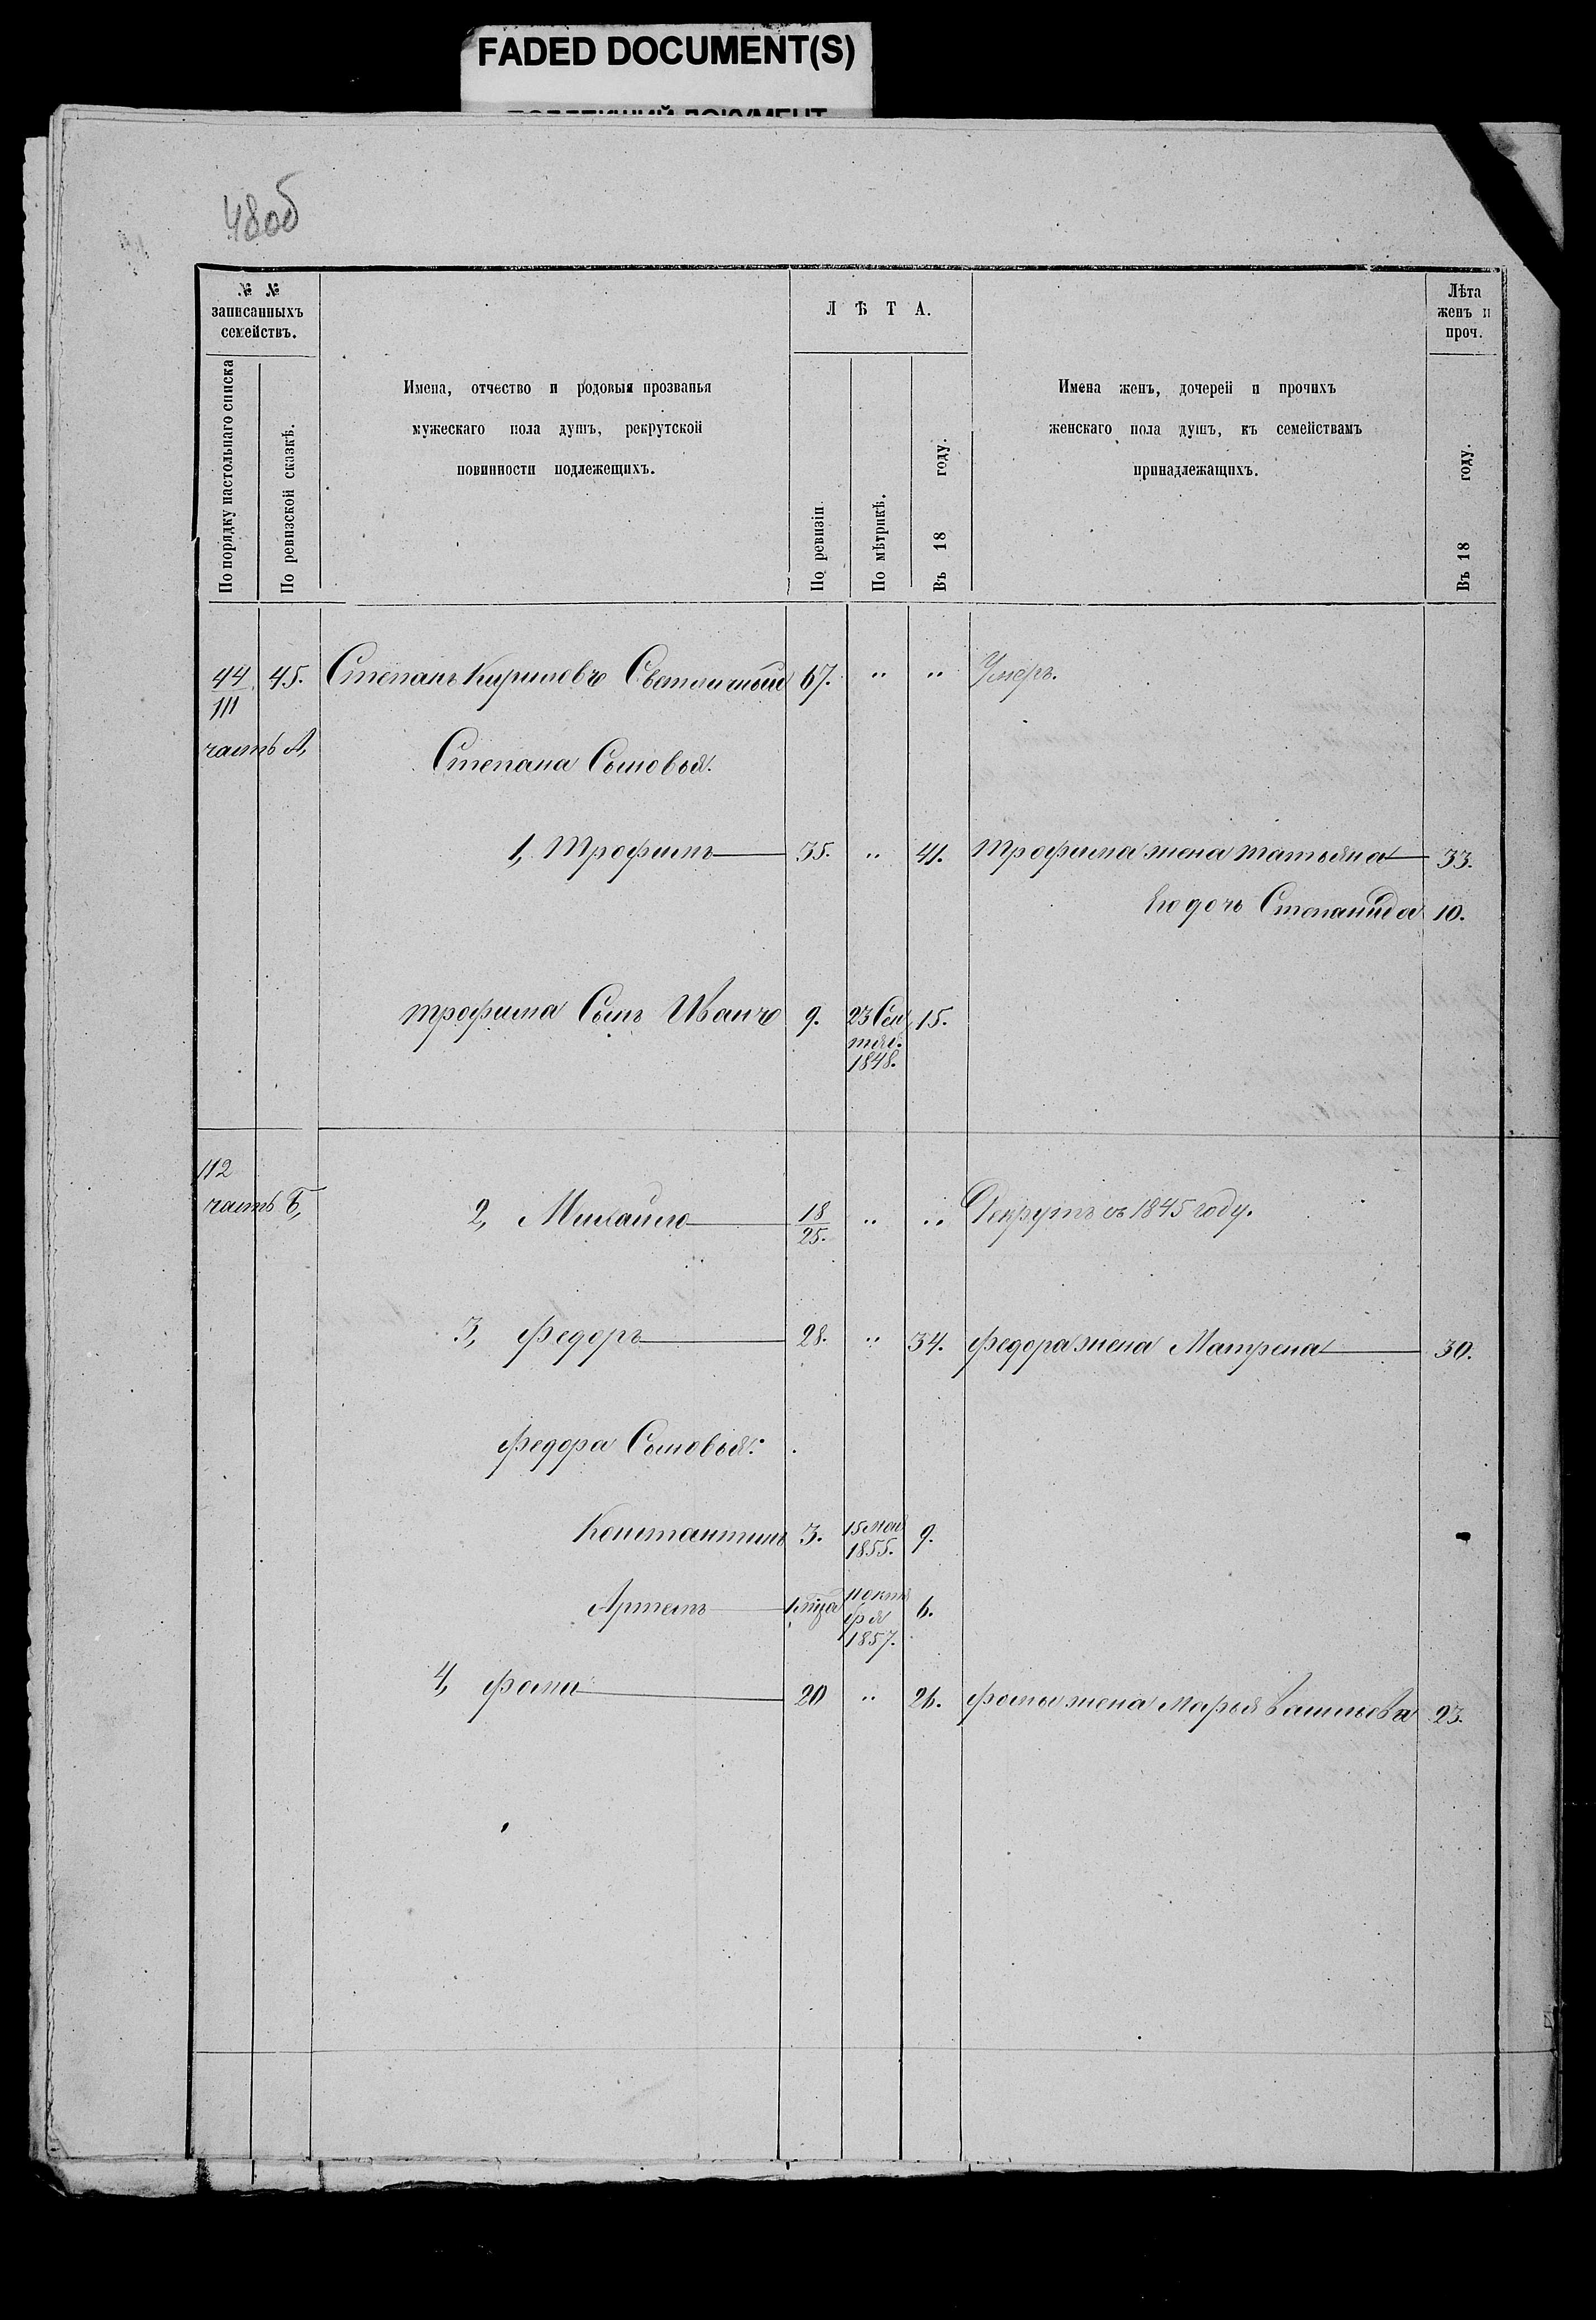 FADED DOCUMENT(S)
48об
№ №
записанныхъ
семействъ.
По порядку настольнаго списка
По ревизской сказкѣ.
Имена, отчество и родовыя прозванья
мужескаго пола душъ, рекрутской
повинности подлежещихъ.
ЛѢТА.
По ревизіи
По мѣтрикѣ.
Въ 18 году.
Имена женъ, дочерей и прочихъ
женскаго пола душъ, къ семействамъ
принадлежащихъ.
Лѣта
женъ и
проч.
Въ 18 году.
44 45. Степанъ Кириловъ Светличный 67. " " Умеръ.
111
часть А,
Степана Сыновья:
1, Трофимъ 35. " 41. Трофима жена Татьяна 33.
Его дочь Степанида 10.
Трофима Сынъ Иванъ 9. 23 Сен 15.
тяб.
1848.
112
часть Б,
2, Михайло 18 " " Рекрутъ въ 1845 году.
25.
3, Федоръ 28. " 34. Федора жена Матрена 30.
Федора Сыновья:
Константинъ 3. 15 мая 9.
1855.
Артемъ 1 мца 11 октя 6.
бря
1857.
4, Фома 20 " 26. Фомы жена Марья Васильева 23.